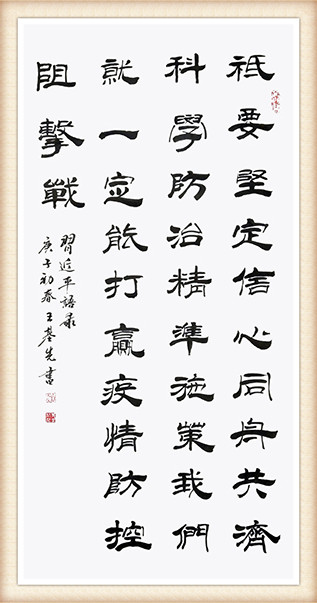 祗要堅定信心同舟共濟
科學防治精準施策我們
就一定能打贏疫情防控
阻擊戰
習近平語錄
庚子初春王基先書